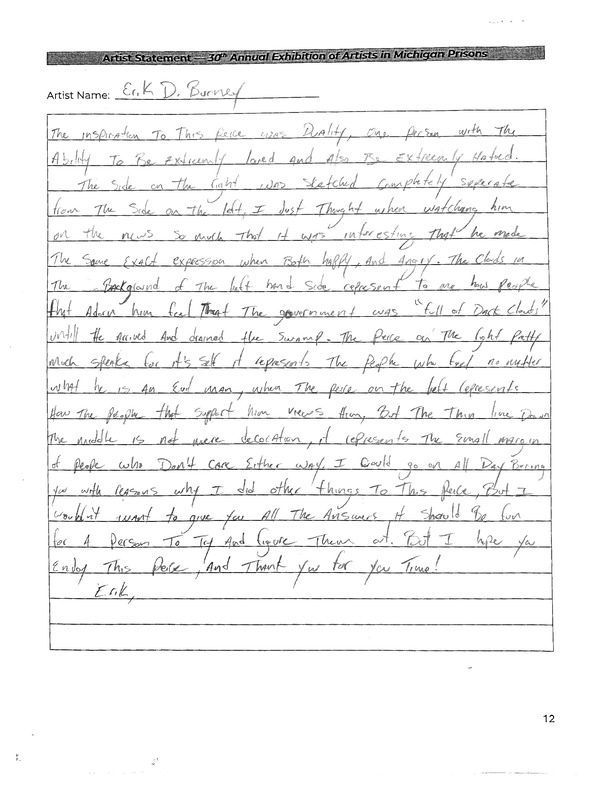 Artist Statement — 30th Annual Exhibition of Artists in Michigan Prisons
Artist Name: Erik D. Burney
The inspiration To This peice was Duality, One Person with The
Ability To Be Extreemly loved And Also Be Extreemly Hatred.
The Side on The right was Sketched Completely Seperate
from The Side on The left, I Just Thought when watching him
on the news so much That it was interesting That he made
The Same Exact expression when Both happy, And Angry. The Clouds in
The BackGround of The left hand Side represent to me how People
that Adorn him feel That The government was "full of Dark Clouds"
untill He Arrived And drained the Swamp. The Peice on The right Pretty
much speaks for it's self it represents The People who feel no matter
what he is An Evil man, when The peice on the left represents
How The People that support him views Him, But The Thin line Down
The middle is not mere decoration, it represents The Small margin
of people who Don't Care Either way. I Could go on All Day Boring
you with reasons why I did other things To This Peice, But I
wouldn't want to give you All The Answers it Should Be fun
for A Person To Try And figure Them out. But I hope you
Enjoy This Peice, And Thank you for you Time!
Erik,
12